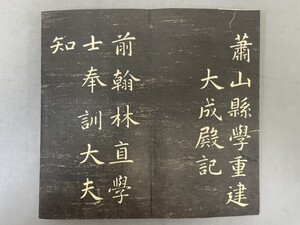 蕭山縣學重建
大成殿記
前翰林直學
士奉訓大夫
知